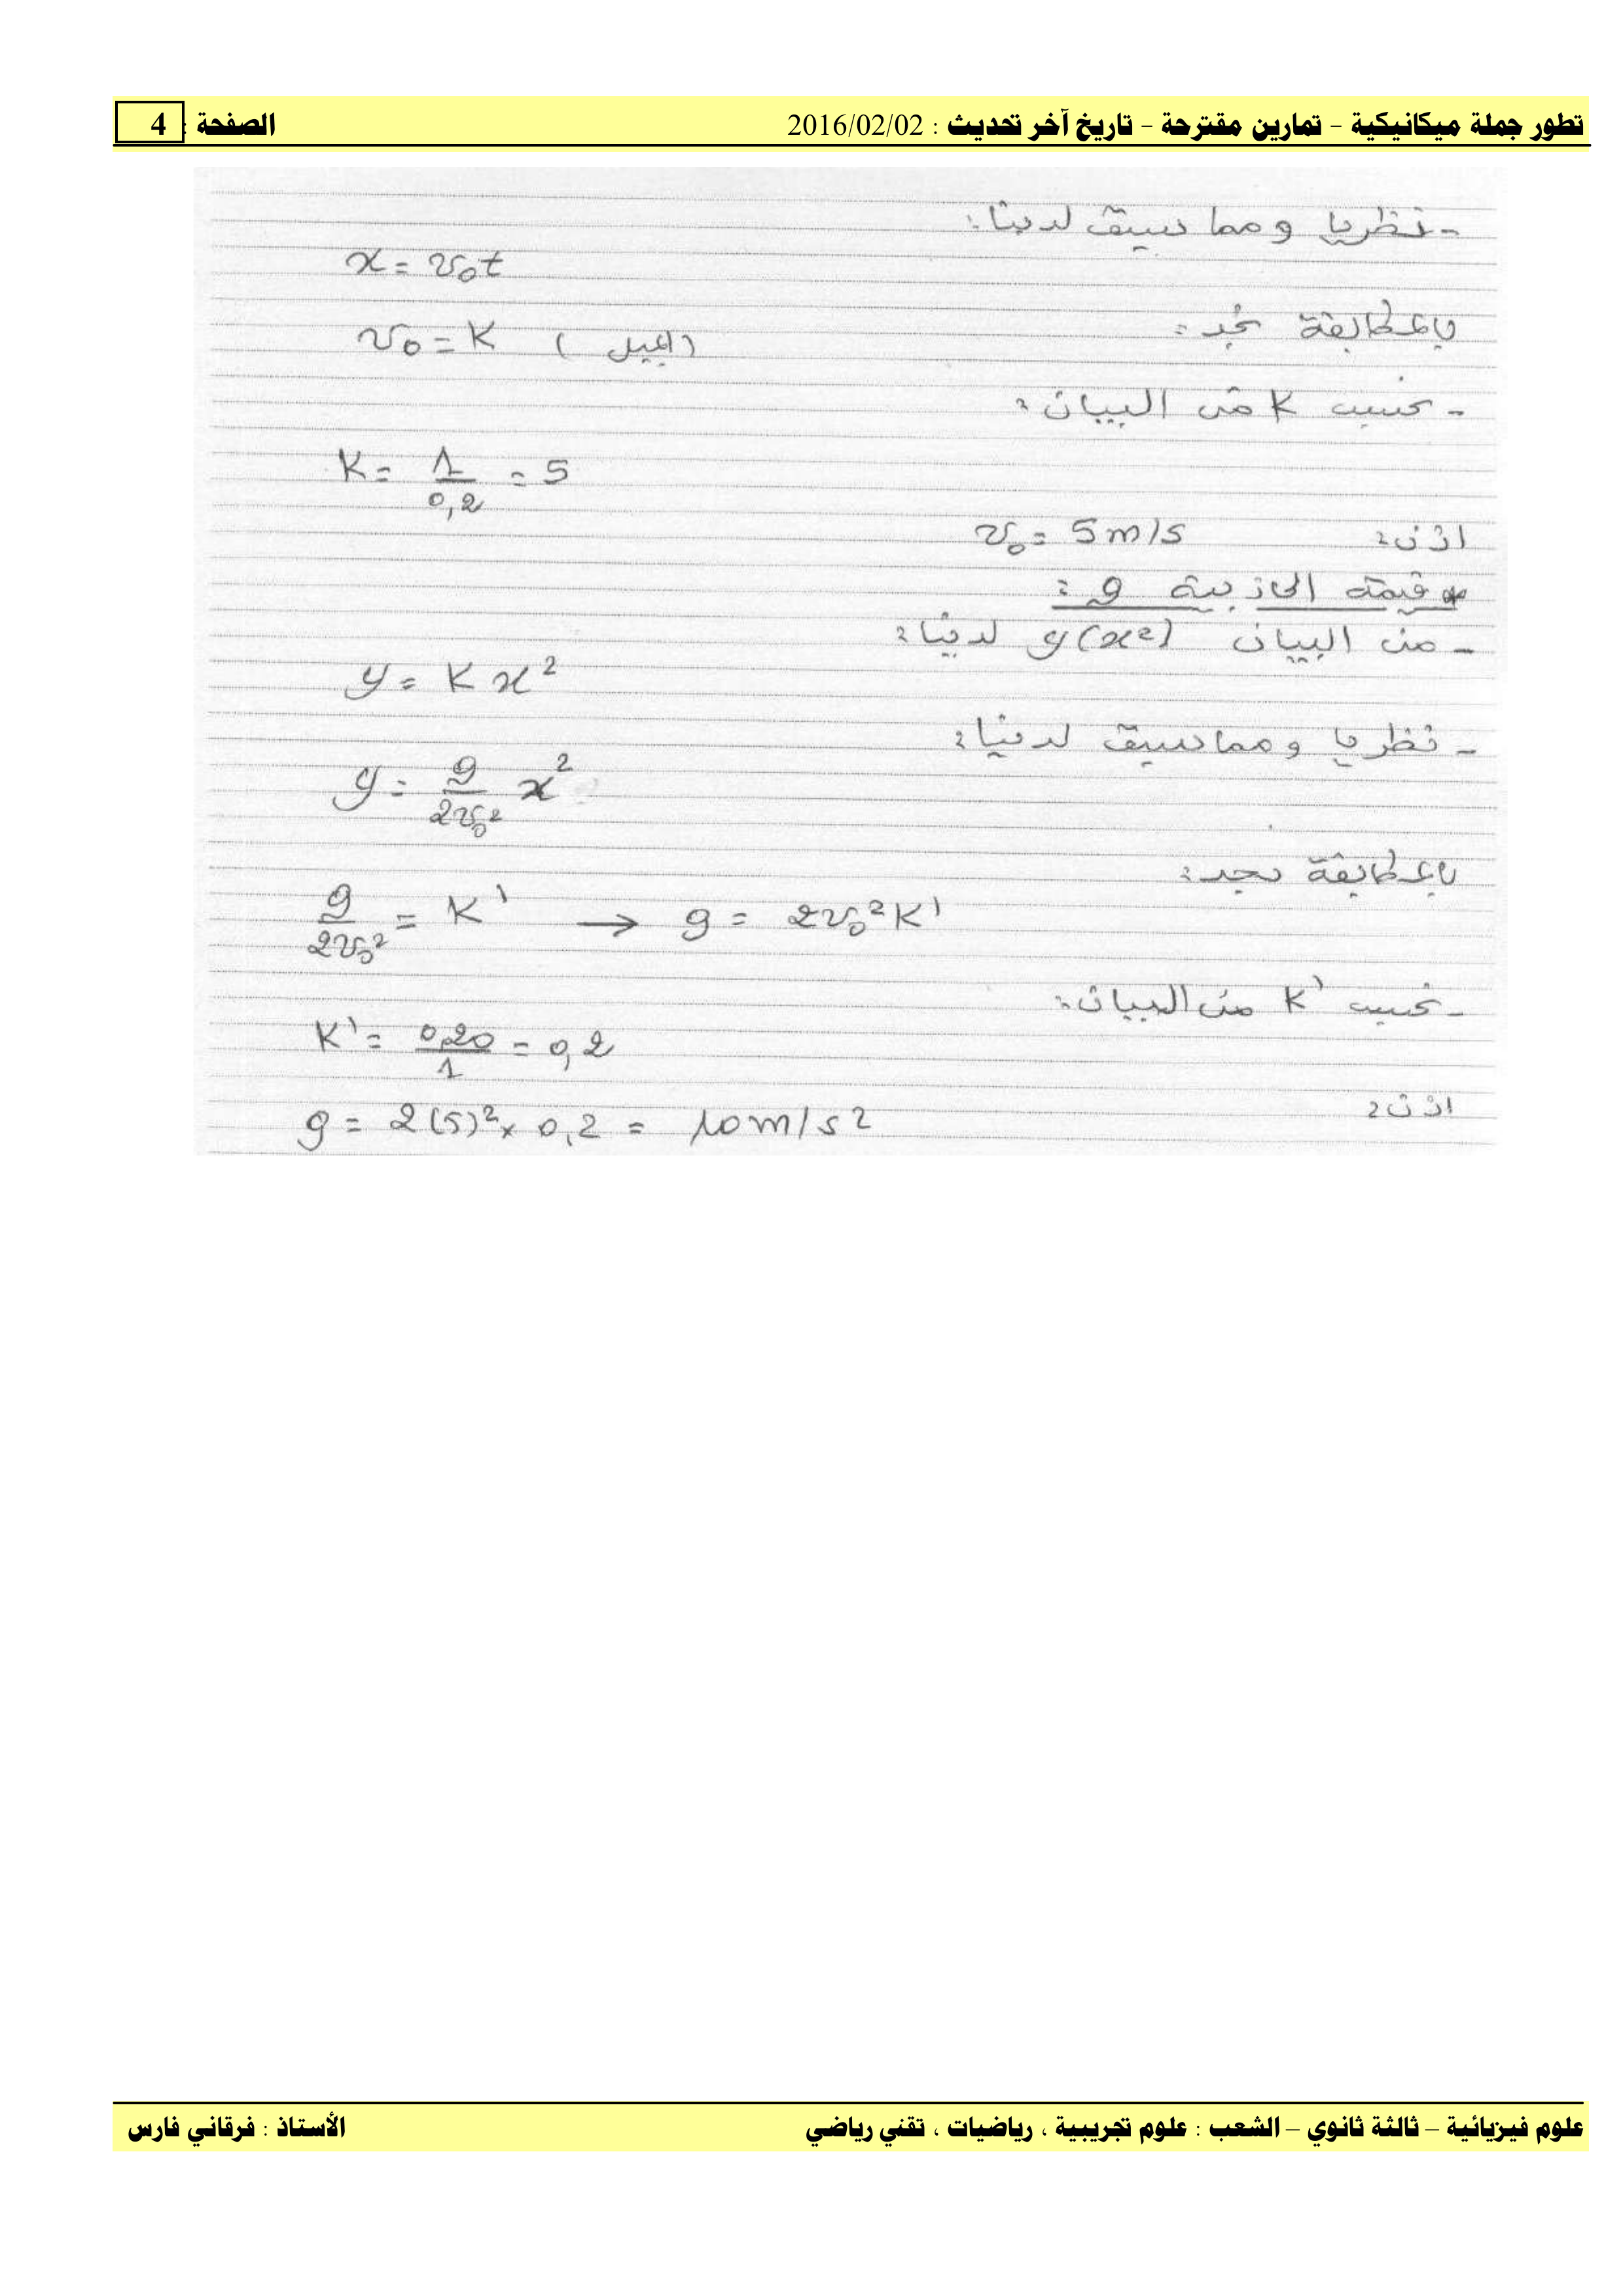 تطور جملة ميكانيكية - تمارين مقترحة - تاريخ آخر تحديث : 2016/02/02 الصفحة : 4
- نظريا ومما سبق لدينا :
x = v₀t
بالمطابقة نجد :
v₀ = K (الميل)
- نحسب K من البيان :
K = 1/0,2 = 5
اذن : v₀ = 5 m/s
* قيمة الجاذبية g :
- من البيان y(x²) لدينا :
y = K x²
- نظريا ومما سبق لدينا :
y = g/2v₀² x²
بالمطابقة نجد :
g/2v₀² = K' → g = 2v₀²K'
- نحسب K' من البيان :
K' = 0,20/1 = 0,2
اذن :
g = 2(5)² × 0,2 = 10 m/s²
علوم فيزيائية – ثالثة ثانوي – الشعب : علوم تجريبية ، رياضيات ، تقني رياضي الأستاذ : فرقاني فارس